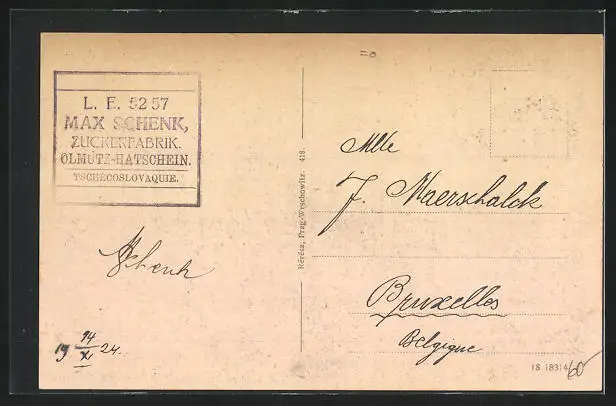 L. E. 5257
MAX SCHENK,
ZUCKERFABRIK.
OLMÜTZ-HATSCHEIN.
TSCHÉCOSLOVAQUIE.
Schenk
19 14/XI 24.
Révész, Prag-Wrschowitz. 418.
Mlle
J. Maerschalck
Bruxelles
Belgique
18 18314
60